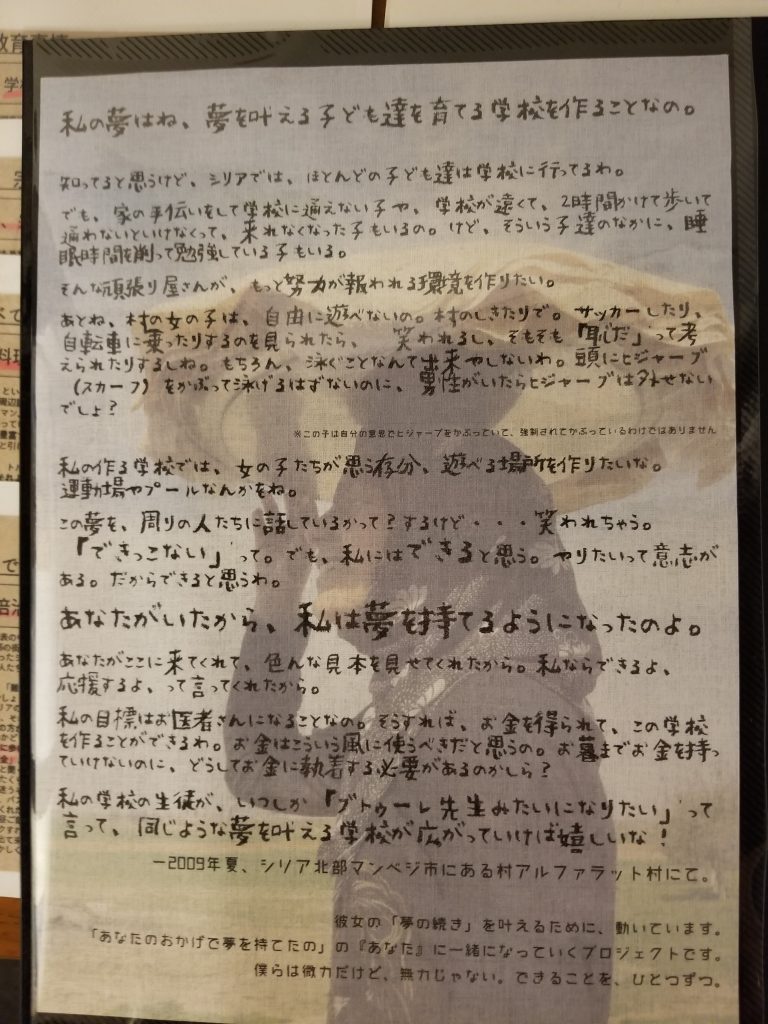 私の夢はね、夢を叶える子ども達を育てる学校を作ることなの。
知ってると思うけど、シリアでは、ほとんどの子ども達は学校に行ってるわ。
でも、家の手伝いをして学校に通えない子や、学校が遠くて、2時間かけて歩いて
通わないといけなくって、来れなくなった子もいるの。けど、そういう子達のなかに、睡
眠時間を削って勉強している子もいる。
そんな頑張り屋さんが、もっと努力が報われる環境を作りたい。
あとね、村の女の子は、自由に遊べないの。村のしきたりで。サッカーしたり、
自転車に乗ったりするのを見られたら、笑われるし、そもそも「恥だ」って考
えられたりするしね。もちろん、泳ぐことなんて出来やしないわ。頭にヒジャーブ
(スカーフ)をかぶって泳げるはずないのに、男性がいたらヒジャーブは外せない
でしょ?
※この子は自分の意思でヒジャーブをかぶっていて、強制されてかぶっているわけではありません
私の作る学校では、女の子たちが思う存分、遊べる場所を作りたいな。
運動場やプールなんかをね。
この夢を、周りの人たちに話しているかって?するけど・・・笑われちゃう。
「できっこない」って。でも、私にはできると思う。やりたいって意志が
ある。だからできると思うわ。
あなたがいたから、私は夢を持てるようになったのよ。
あなたがここに来てくれて、色んな見本を見せてくれたから。私ならできるよ、
応援するよ、って言ってくれたから。
私の目標はお医者さんになることなの。そうすれば、お金を得られて、この学校
を作ることができるわ。お金はこういう風に使うべきだと思うの。お墓までお金を持っ
ていけないのに、どうしてお金に執着する必要があるのかしら?
私の学校の生徒が、いつしか「ブトゥーレ先生みたいになりたい」って
言って、同じような夢を叶える学校が広がっていけば嬉しいな!
−2009年夏、シリア北部マンベジ市にある村アルファラット村にて。
彼女の「夢の続き」を叶えるために、動いています。
「あなたのおかげで夢を持てたの」の『あなた』に一緒になっていくプロジェクトです。
僕らは微力だけど、無力じゃない。できることを、ひとつずつ。